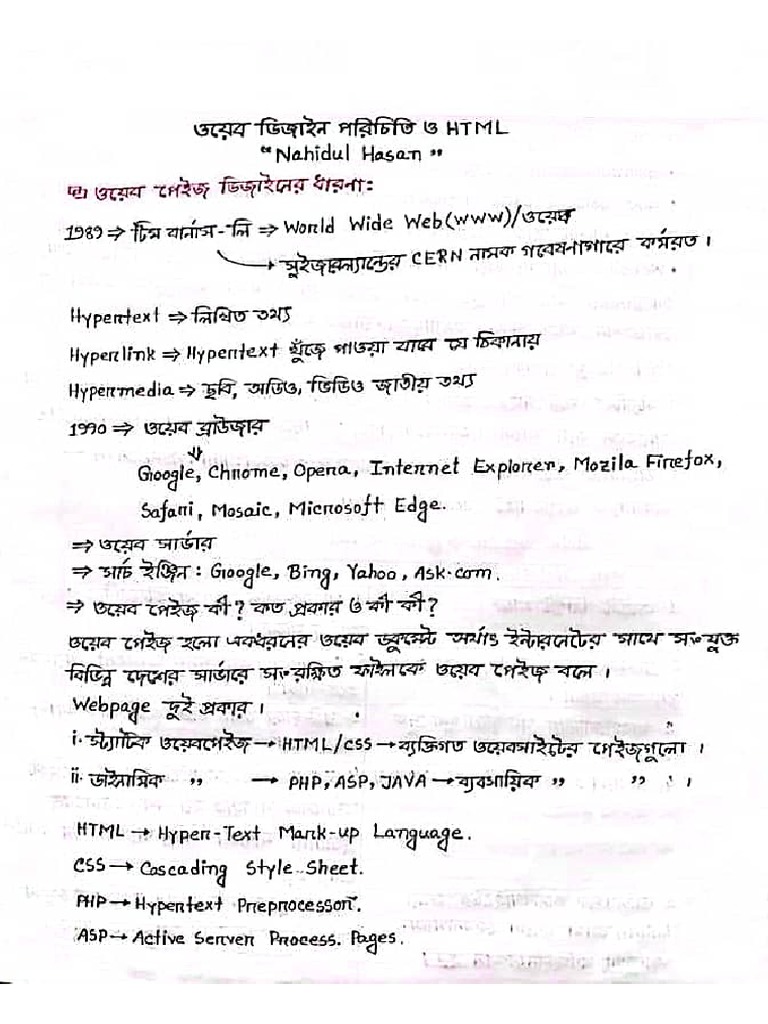 ওয়েব ডিজাইন পরিচিতি ও HTML
"Nahidul Hasan"
ওয়েব পেইজ ডিজাইনের ধারনা:
1989 ⇒ টিম বার্নাস-লি ⇒ World Wide Web(www)/ওয়েব
→ সুইজারল্যান্ডের CERN নামক গবেষণাগারে কর্মরত।
Hypertext ⇒ লিখিত তথ্য
Hyperlink ⇒ Hypertext খুঁজে পাওয়া যাবে যে ঠিকানায়
Hypermedia ⇒ ছবি, অডিও, ভিডিও জাতীয় তথ্য
1990 ⇒ ওয়েব ব্রাউজার
⇓
Google, Chrome, Opera, Internet Explorer, Mozila Firefox,
Safari, Mosaic, Microsoft Edge.
⇒ ওয়েব সার্ভার
⇒ সার্চ ইঞ্জিন : Google, Bing, Yahoo, Ask.com.
⇒ ওয়েব পেইজ কী? কত প্রকার ও কী কী?
ওয়েব পেইজ হলো একধরনের ওয়েব ডকুমেন্ট অর্থাৎ ইন্টারনেটের সাথে সংযুক্ত
বিভিন্ন দেশের সার্ভারে সংরক্ষিত ফাইলকে ওয়েব পেইজ বলে।
Webpage দুই প্রকার।
i. স্ট্যাটিক ওয়েবপেইজ → HTML/CSS → ব্যক্তিগত ওয়েবসাইটের পেইজগুলো।
ii. ডাইনামিক " → PHP, ASP, JAVA → ব্যবসায়িক " " ।
HTML → Hyper-Text Mark-up Language.
CSS → Cascading Style Sheet.
PHP → Hypertext Preprocessor.
ASP → Active Server Process. Pages.